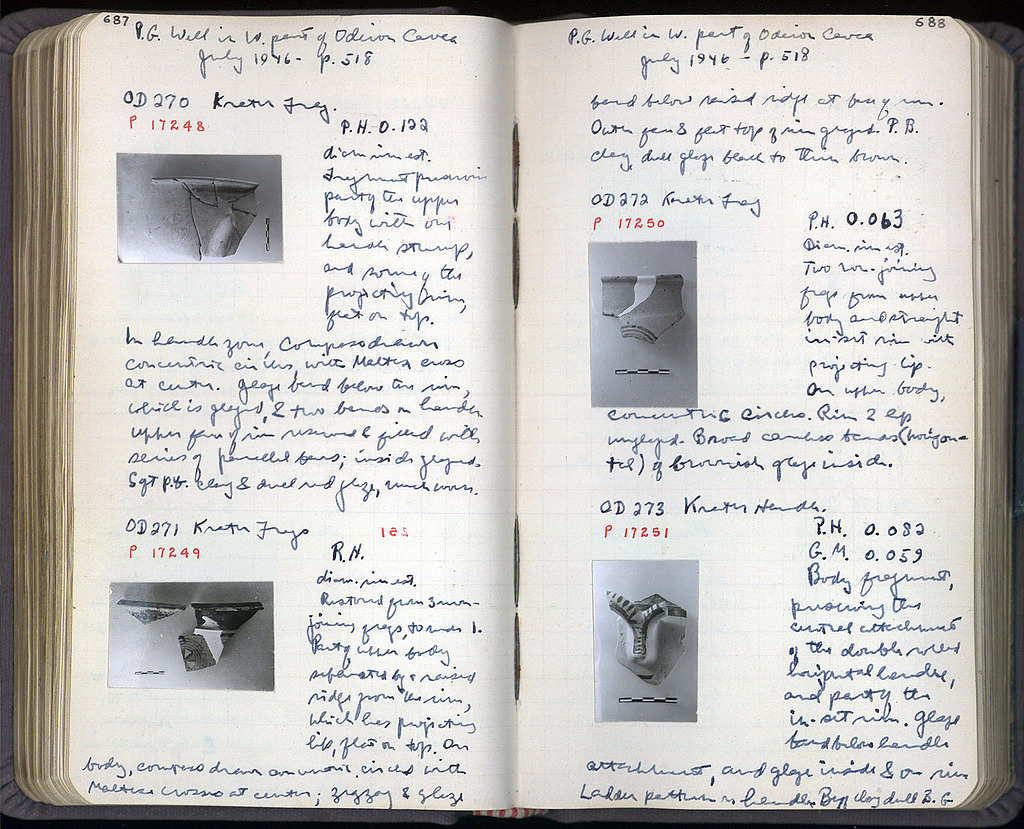 687
P.G. Well in W. part of Odeion Cavea
July 1946 - p. 518
OD 270 Krater Frag.
P 17248
P.H. 0.122
diam. rim est.
Fragment preserving
part of the upper
body with one
handle stump,
and some of the
projecting rim,
flat on top.
In handle zone, compass drawn
concentric circles, with Maltese cross
at center. Glaze band below the rim,
which is glazed, & two bands on handle.
Upper face of rim reserved & filled with
series of parallel bars; inside glazed.
Sgt p.b. clay & dull red glaze, much worn.
OD 271 Krater Frags
P 17249
P.H.
diam. rim est.
Restored from 3 non-
joining frags, to make 1.
Part of upper body
separated by a raised
ridge from the rim,
which has projecting
lip, flat on top. On
body, compass drawn concentric circles with
Maltese crosses at center; zigzag & glaze
688
P.G. Well in W. part of Odeion Cavea
July 1946 - p. 518
band below raised ridge at base of rim.
Outer face & flat top of rim glazed. P.B.
clay, dull glaze black to thin brown.
OD 272 Krater Frag
P 17250
P.H. 0.063
Diam. rim est.
Two non-joining
frags from upper
body and straight
in-set rim with
projecting lip.
On upper body,
concentric circles. Rim & lip
unglazed. Broad careless bands (horizon-
tal) of brownish glaze inside.
OD 273 Krater Handle.
P 17251
P.H. 0.082
G.M. 0.059
Body fragment,
preserving the
central attachment
of the double rolled
horizontal handle,
and part of the
in-set rim. Glaze
band below handle
attachment, and glaze inside & on rim
Ladder pattern on handle. Buff clay dull B.G.